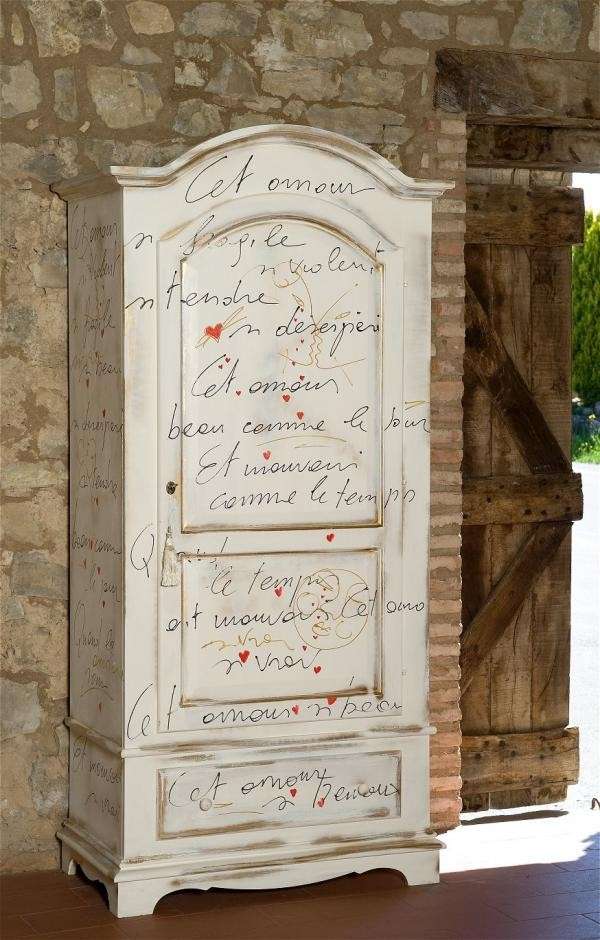 Cet amour
si fragile
si violent
si tendre
si désespéré
Cet amour
beau comme le jour
Et mauvais
comme le temps
Quand
le temps
est mauvais Cet amo
si vrai
si vrai
Cet amour si beau
Cet amour
si heureux
Cet amour
si violent
si fragile
si beau
si désespéré
si tendre
beau comme
le jour
Quand
Cet amour
si vrai